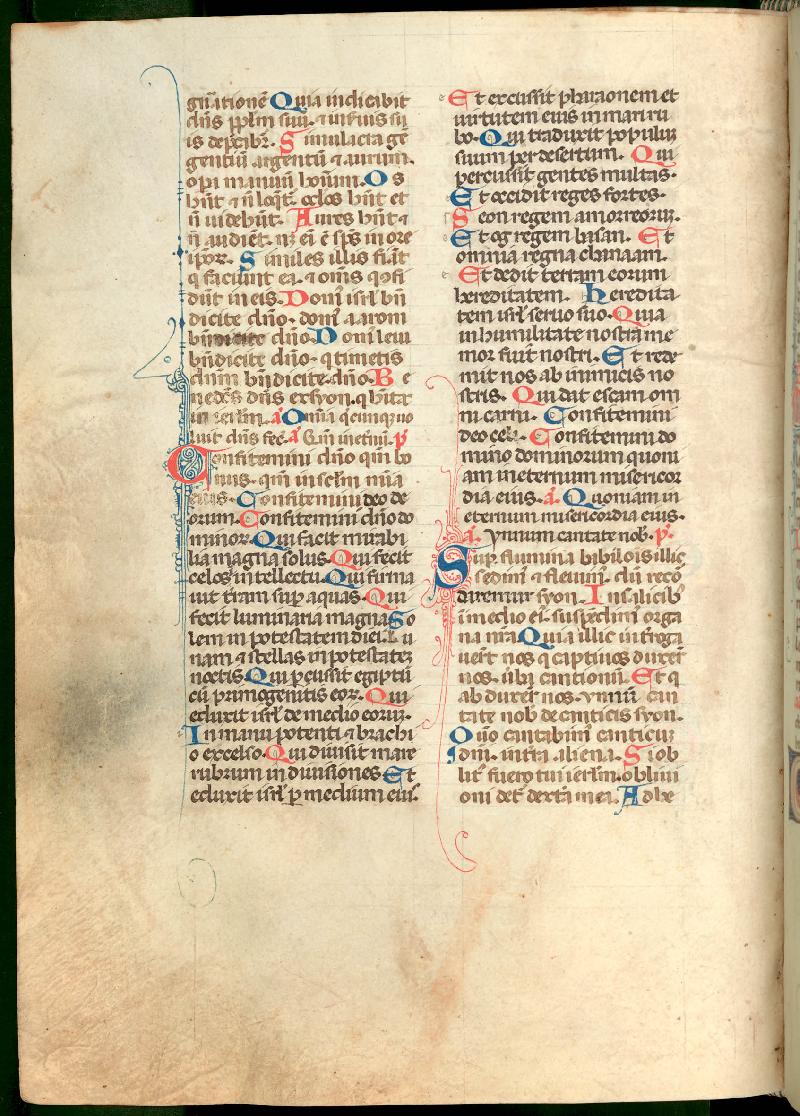 gn̄ationē Quia iudicabit
dn̄s pp̄lm suū. ⁊ in suis sū
is dep̄cabr̄. Simulacra gē
gentiū argentū ⁊ aurum.
opa manuū hoīum. Os
hn̄t ⁊ n̄ loqt̄. oc̄los hn̄t et
n̄ videbūt. Aures hn̄t ⁊
n̄ audiēt. nz eī ē sp̄s in ore
ip̄or. Similes illis fiāt
q̄ faciunt ea. ⁊ om̄s q̄ 9fi
dūt in eis. Dom̄ isrl̄ bn̄
dicite dn̄o. dom̄ aaron
bn̄dicite dn̄o. Dom̄ leui
bn̄dicite dn̄o. q̄ timetis
dnm̄ bn̄dicite. dn̄o. Be
nedc̄s dn̄s ex syon. q̄ hītat
in ierl̄m. a Om̄ia q̄cumq̄ uo
luit dn̄s fec̄. a Qm̄ in et̄nū. p̄
Confitemini dn̄o qm̄ bo
nus. qm̄ in sc̄lm mīa
eius. Confitemini deo de
orum. Confitemini dn̄o do
minor. Qui facit mirabi
lia magna solus. Qui fecit
celos intellectu. Qui firma
uit t̄ram sup̄ aquas. Qui
fecit luminaria magna So
lem in potestatem diei. Lu
nam ⁊ stellas in potestatez
noctis. Qui p̄cussit egiptū
cū primogenitis eor. Qui
eduxit isrl̄ de medio eoruz.
In manu potenti ⁊ brachi
o excelso. Qui diuisit mare
rubrum in diuisiones Et
eduxit isrl̄ p̄ medium eius.
Et excussit pharaonem et
uirtutem eius in mari ru
bo. Qui traduxit populuz
suum per desertum. Qui
percussit gentes multas.
Et occidit reges fortes.
Seon regem amorreoruz.
Et og regem basan. Et
omnia regna chanaam.
Et dedit terram eorum
hereditatem. Heredita
tem isrl̄ seruo suo. Quia
in humilitate nostra me
mor fuit nostri. Et rede
mit nos ab inimicis no
stris. Qui dat escam om
ni carni. Confitemini
deo celi. Confitemini do
mino dominorum quoni
am in eternum misericor
dia eius. a. Quoniam in
eternum misericordia eius.
a. Ymnum cantate nob. p̄.
Sup̄ flumina bibilois illic
sedim̄ ⁊ fleuim̄. dū recō
daremur syon. In salicib
in medio ei. suspēdim̄ orga
na n̄ra Quia illic int̄roga
uer̄t nos q̄ captiuos duxer̄t
nos. ūba cantionū. Et q̄
ab duxer̄t nos. ymnū can
tate nob de canticis syon.
Quō cantabim̄ canticuz
dn̄i. in t̄ra aliena. Si ob
lit̄ fuero tui ierl̄m. obliui
oni det̄ dext̄a mea. Adhe